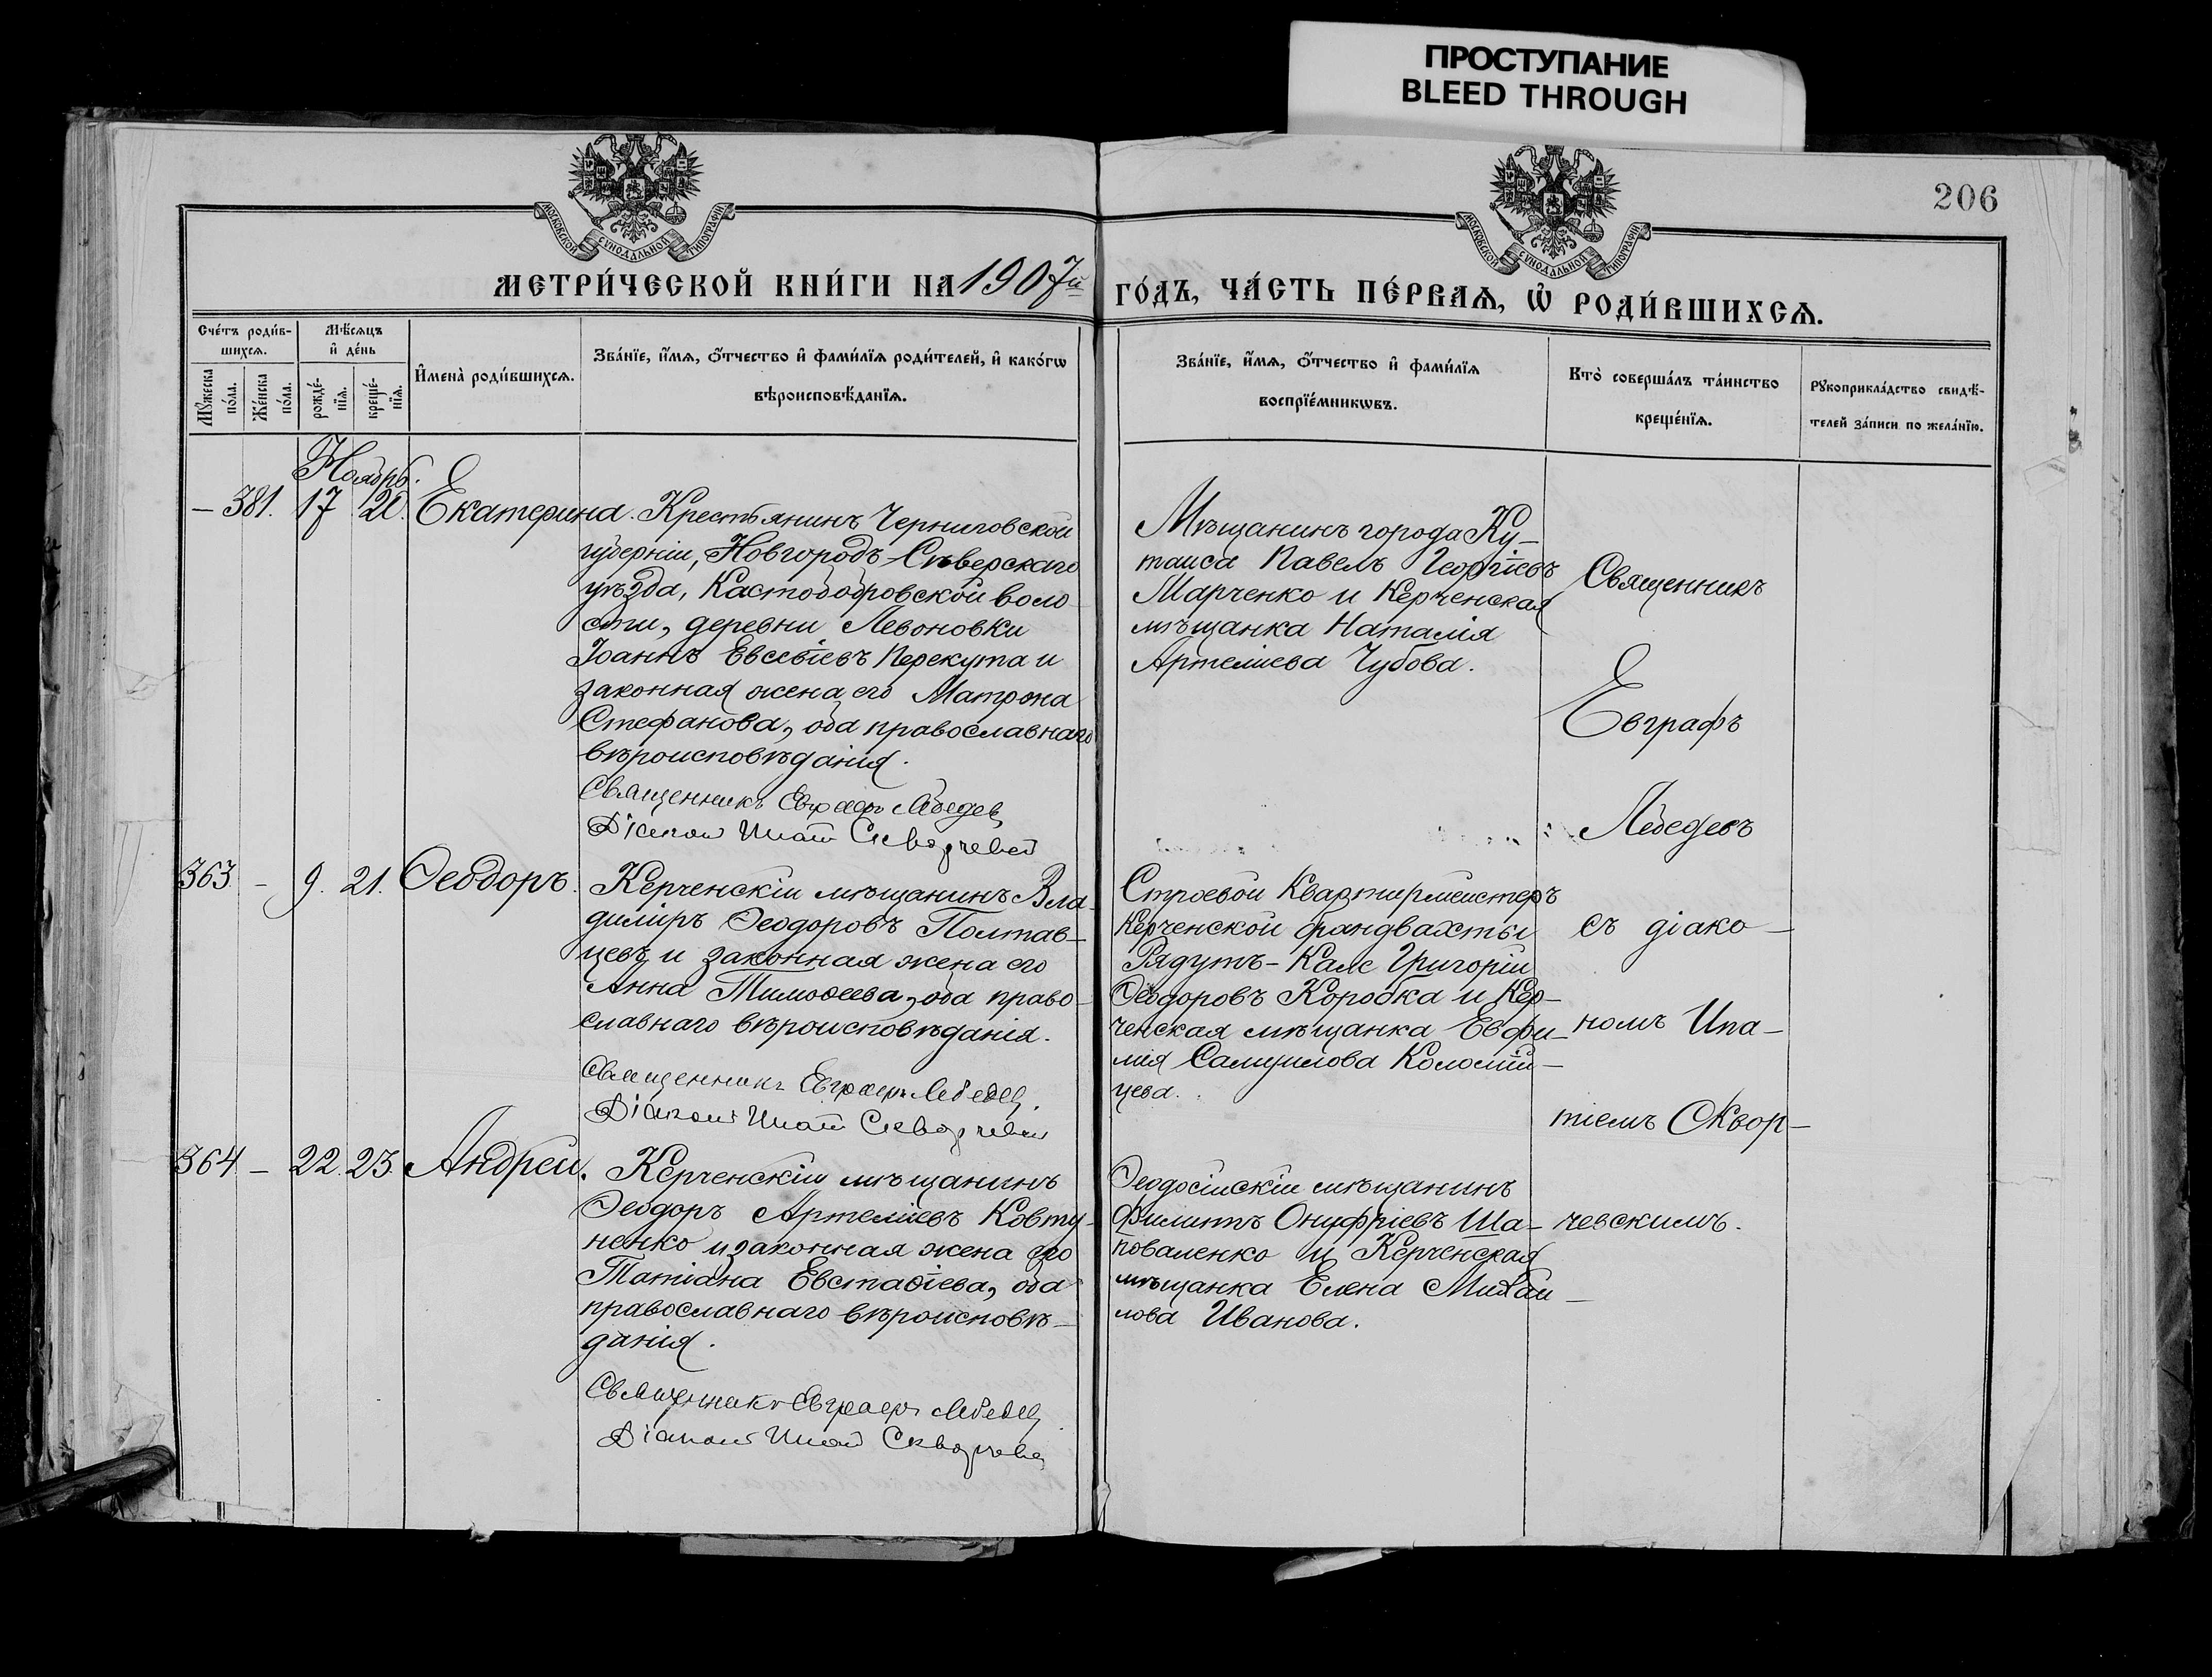 ПРОСТУПАНИЕ
BLEED THROUGH
206
МОСКОВСКОЙ СѴНОДАЛЬНОЙ ТИПОГРАФІИ
МОСКОВСКОЙ СѴНОДАЛЬНОЙ ТИПОГРАФІИ
МЕТРИ́ЧЕСКОЙ КНИ́ГИ НА 1907й
ГО́ДЪ, ЧА́СТЬ ПЕ́РВАѦ, Ѡ҆ РОДИ́ВШИХСѦ.
Счéтъ роди́в-
шихсѧ.
Мѣ́сѧцъ
и҆ де́нь
Мꙋ́жеска
по́ла.
Же́нска
по́ла.
рожде́-
нїѧ.
креще́-
нїѧ.
И҆мена̀ роди́вшихсѧ.
Зва́нїе, и҆́мѧ, ѻ҆́тчество и҆ фами́лїѧ роди́телей, и҆ како́гѡ
вѣроисповѣ́данїѧ.
Зва́нїе, и҆́мѧ, ѻ҆́тчество и҆ фами́лїѧ
воспрїе́мникѡвъ.
Кто̀ соверша́лъ та́инство
креще́нїѧ.
Рꙋкоприкла́дство свидѣ́-
телей за́писи по жела́нїю.
Ноябрь.
– 381. 17 20. Екатерина. Крестьянинъ Черниговской
губерніи, Новгородъ-Сѣверскаго
уѣзда, Кастободровской воло-
сти, деревни Левоновки
Іоаннъ Евсевіевъ Перекута и
законная жена его Матрона
Стефанова, оба православнаго
вѣроисповѣданія.
Священникъ Евграфъ Лебедев
Діаконъ Ипат Скворчевск
Мѣщанинъ города Ку-
таиса Павелъ Георгіевъ
Марченко и Керченская
мѣщанка Наталія
Артеміева Чубова.
363 – 9. 21. Ѳеодоръ. Керченскій мѣщанинъ Вла-
димиръ Ѳеодоровъ Полтав-
цевъ и законная жена его
Анна Тимоѳеева, оба право-
славнаго вѣроисповѣданія.
Священникъ Евграфъ Лебедев
Діаконъ Ипат Скворчевск
Строевой Квартирмейстеръ
Керченской брандвахты
Рядутъ-Кале Григорій
Ѳеодоровъ Коробка и Кер-
ченская мѣщанка Евфи-
мія Самуилова Коломій-
цева.
364 – 22. 23. Андрей. Керченскій мѣщанинъ
Ѳеодоръ Артеміевъ Ковту-
ненко и законная жена его
Татіана Евстаѳіева, оба
православнаго вѣроисповѣ-
данія.
Священникъ Евграфъ Лебедев
Діаконъ Ипат Скворчевск
Ѳеодосійскій мѣщанинъ
Филиппъ Онуфріевъ Ша-
поваленко и Керченская
мѣщанка Елена Михаи-
лова Иванова.
Священникъ
Евграфъ
Лебедевъ
съ діако-
номъ Ипа-
тіемъ Сквор-
чевскимъ.